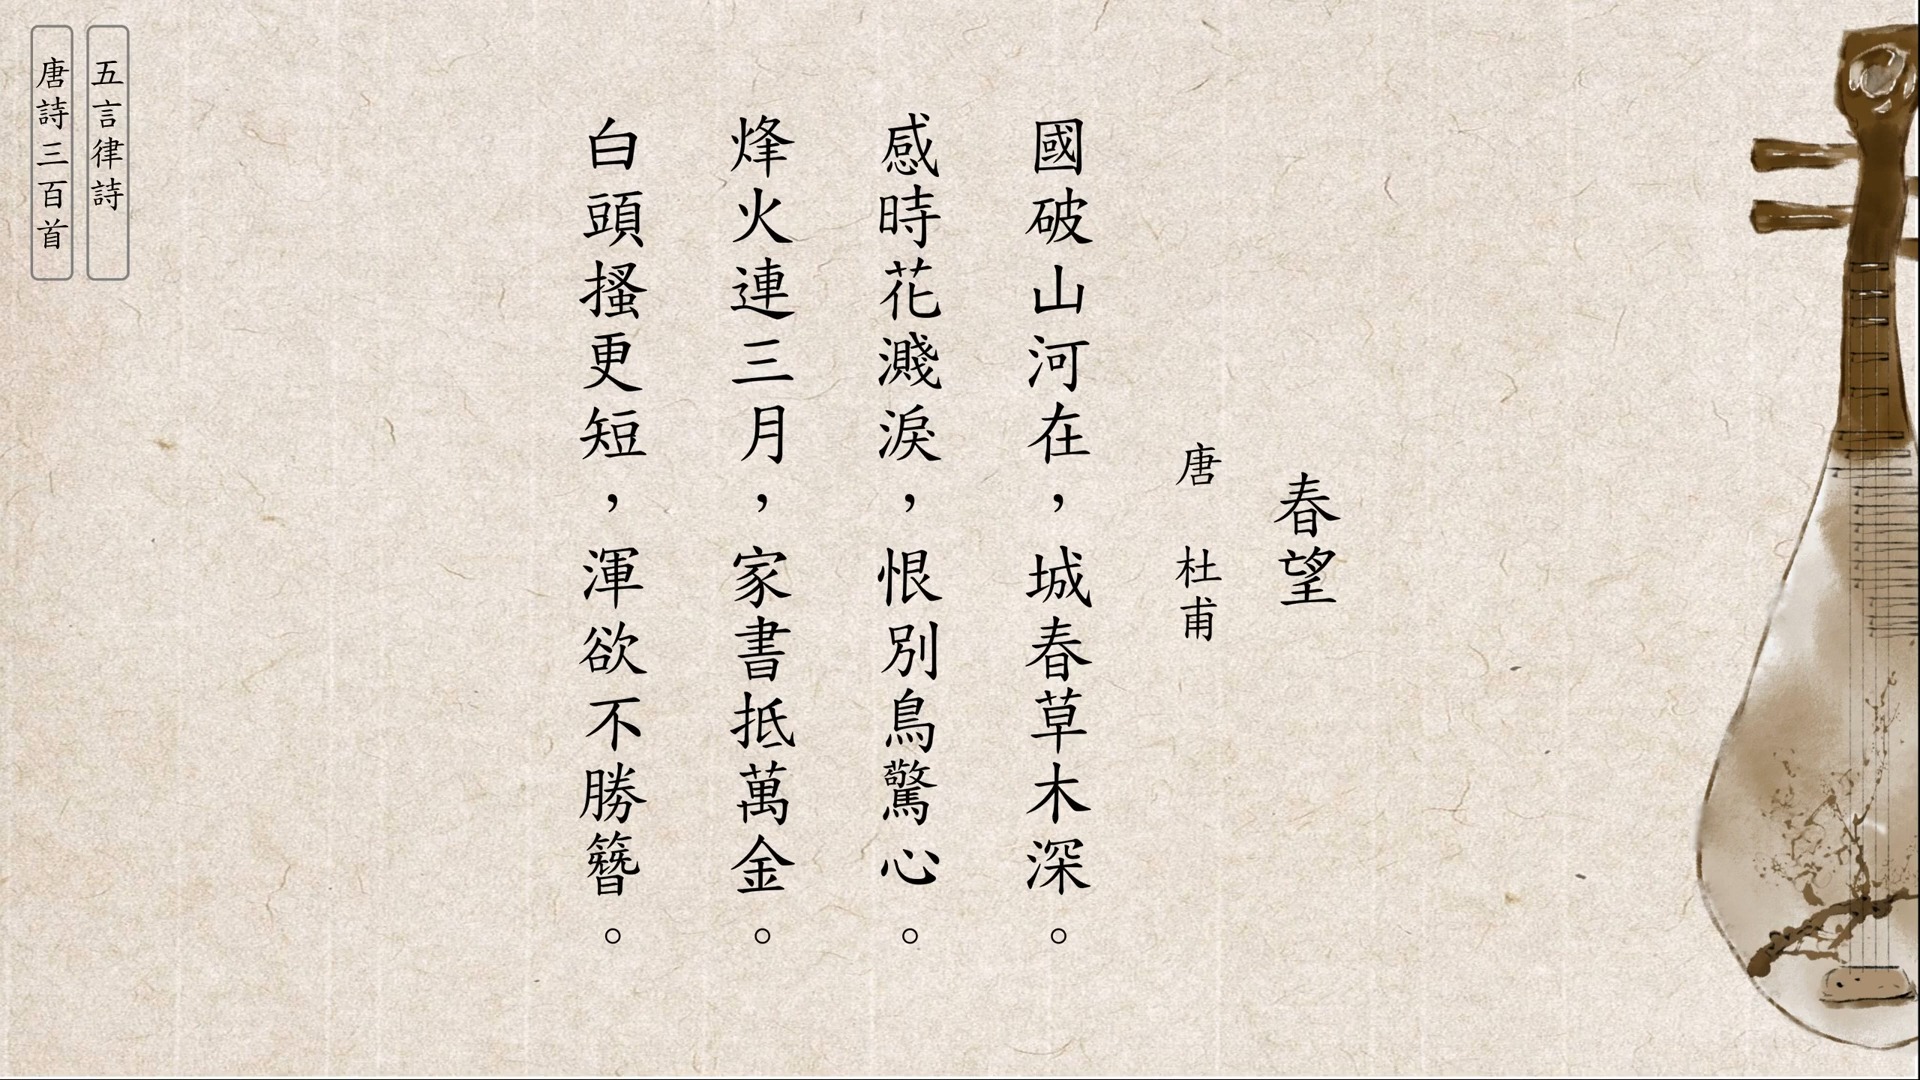 春望
唐 杜甫
國破山河在，城春草木深。
感時花濺淚，恨別鳥驚心。
烽火連三月，家書抵萬金。
白頭搔更短，渾欲不勝簪。
五言律詩
唐詩三百首